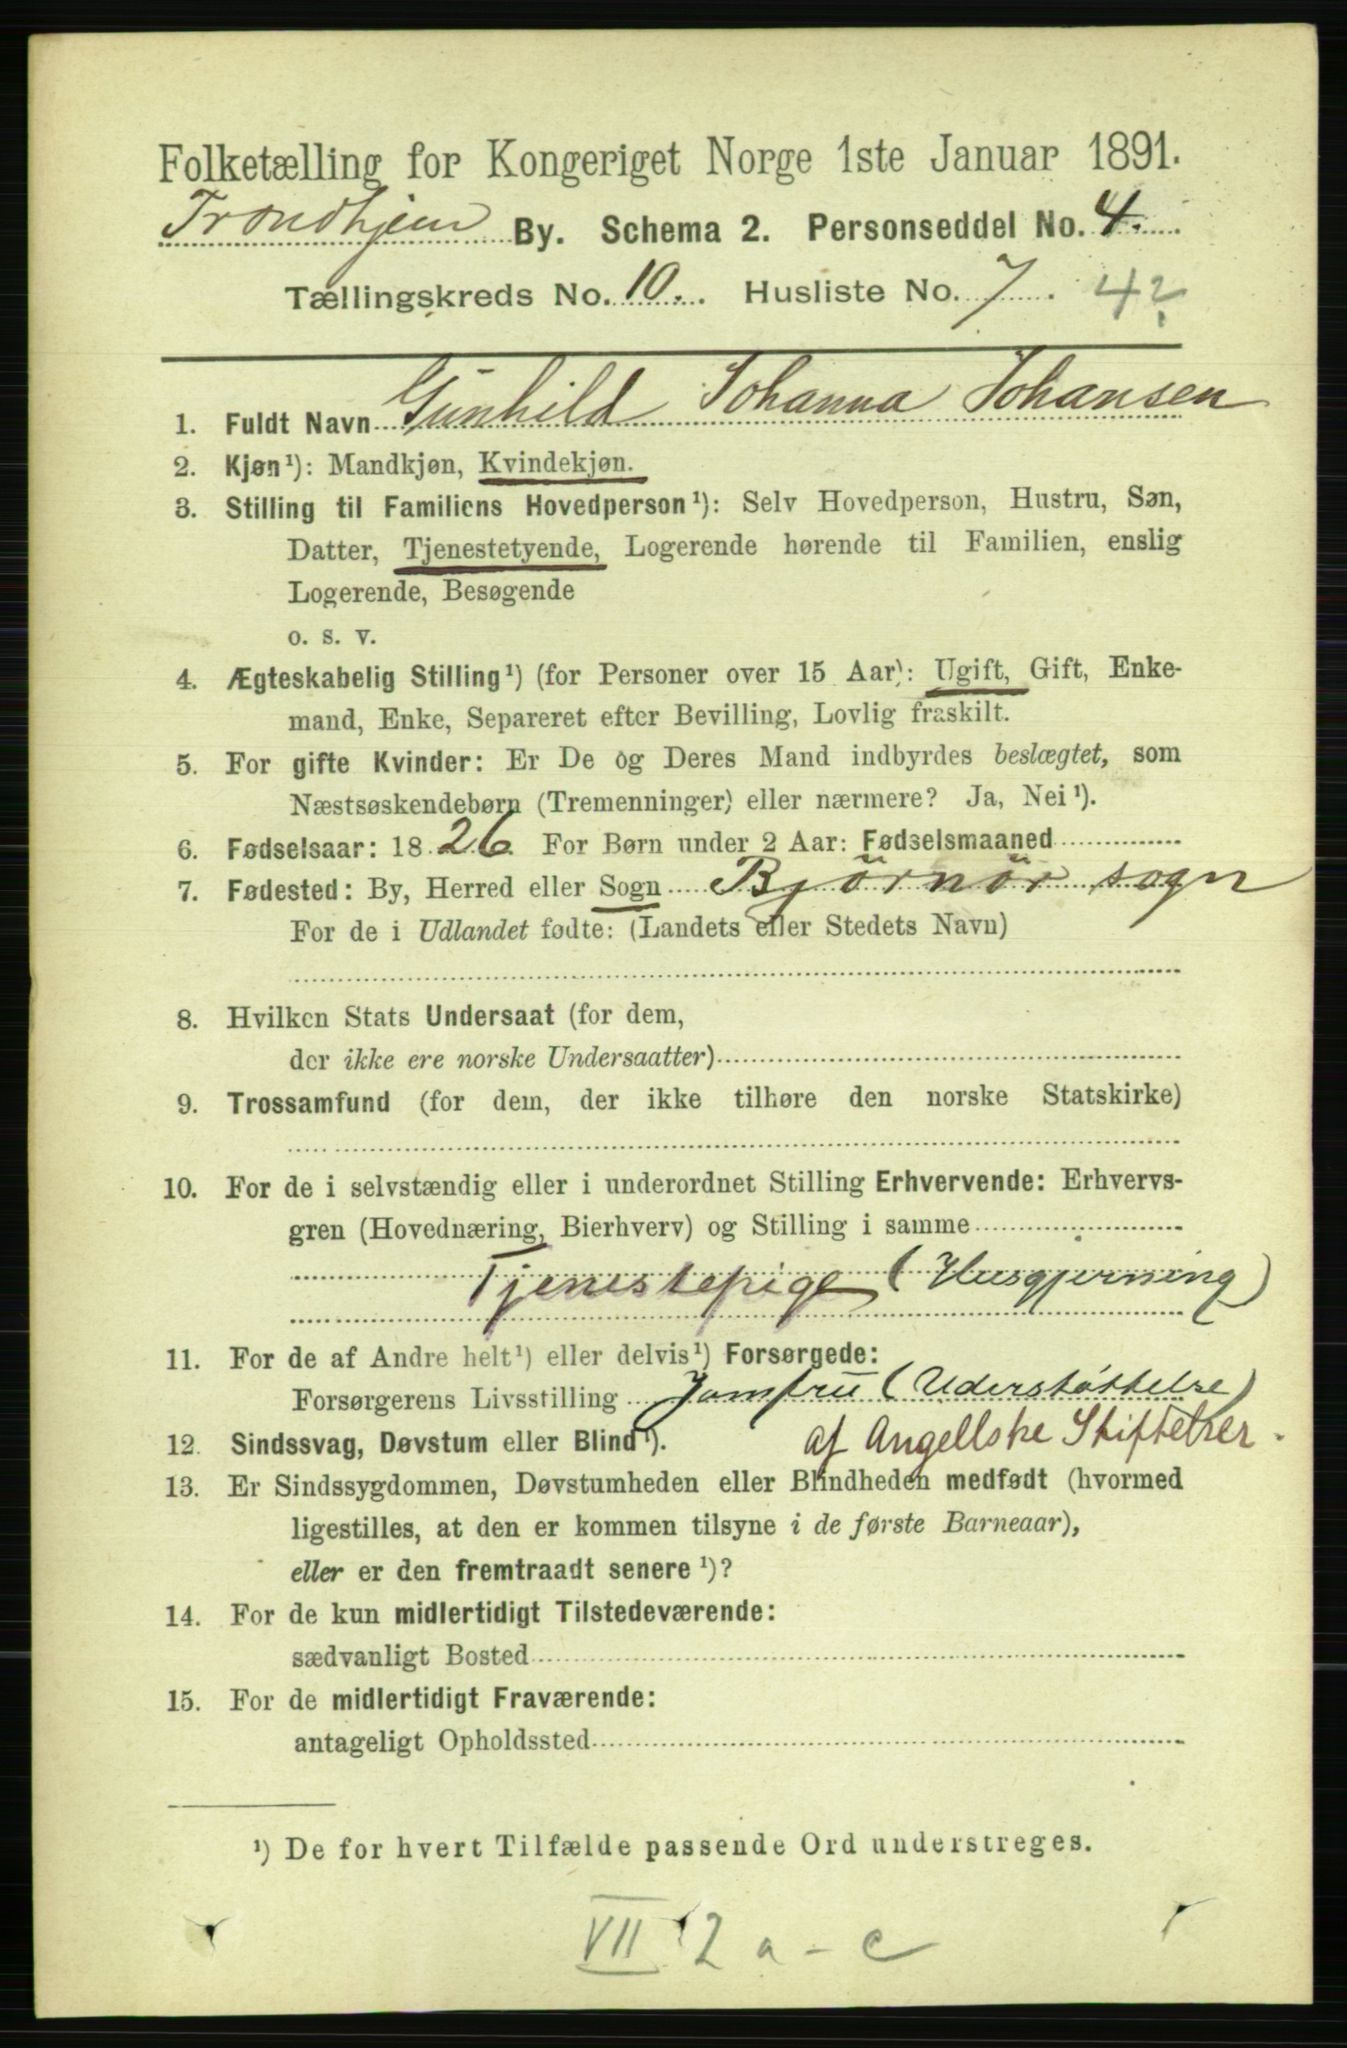 Folketælling for Kongeriget Norge 1ste Januar 1891.
Trondhjem By. Schema 2. Personseddel No. 4.
Tællingskreds No. 10. Husliste No. 7. 42
1. Fuldt Navn Gunhild Johanna Johansen
2. Kjøn¹): Mandkjøn, Kvindekjøn.
3. Stilling til Familiens Hovedperson¹): Selv Hovedperson, Hustru, Søn,
Datter, Tjenestetyende, Logerende hørende til Familien, enslig
Logerende, Besøgende
o. s. v.
4. Ægteskabelig Stilling¹) (for Personer over 15 Aar): Ugift, Gift, Enke-
mand, Enke, Separeret efter Bevilling, Lovlig fraskilt.
5. For gifte Kvinder: Er De og Deres Mand indbyrdes beslægtet, som
Næstsøskendebørn (Tremenninger) eller nærmere? Ja, Nei¹).
6. Fødselsaar: 1826. For Børn under 2 Aar: Fødselsmaaned
7. Fødested: By, Herred eller Sogn Bjørnör sogn
For de i Udlandet fødte: (Landets eller Stedets Navn)
8. Hvilken Stats Undersaat (for dem,
der ikke ere norske Undersaatter)
9. Trossamfund (for dem, der ikke tilhøre den norske Statskirke)
10. For de i selvstændig eller i underordnet Stilling Erhvervende: Erhvervs-
gren (Hovednæring, Bierhverv) og Stilling i samme
Tjenestepige (Husgjerning)
11. For de af Andre helt¹) eller delvis¹) Forsørgede:
Forsørgerens Livsstilling Jomfru (Uderstøttelse)
af Angellske Stiftelser.
12. Sindssvag, Døvstum eller Blind¹).
13. Er Sindssygdommen, Døvstumheden eller Blindheden medfødt (hvormed
ligestilles, at den er kommen tilsyne i de første Barneaar),
eller er den fremtraadt senere¹)?
14. For de kun midlertidigt Tilstedeværende:
sædvanligt Bosted
15. For de midlertidigt Fraværende:
antageligt Opholdssted
¹) De for hvert Tilfælde passende Ord understreges.
VII 2 a - c